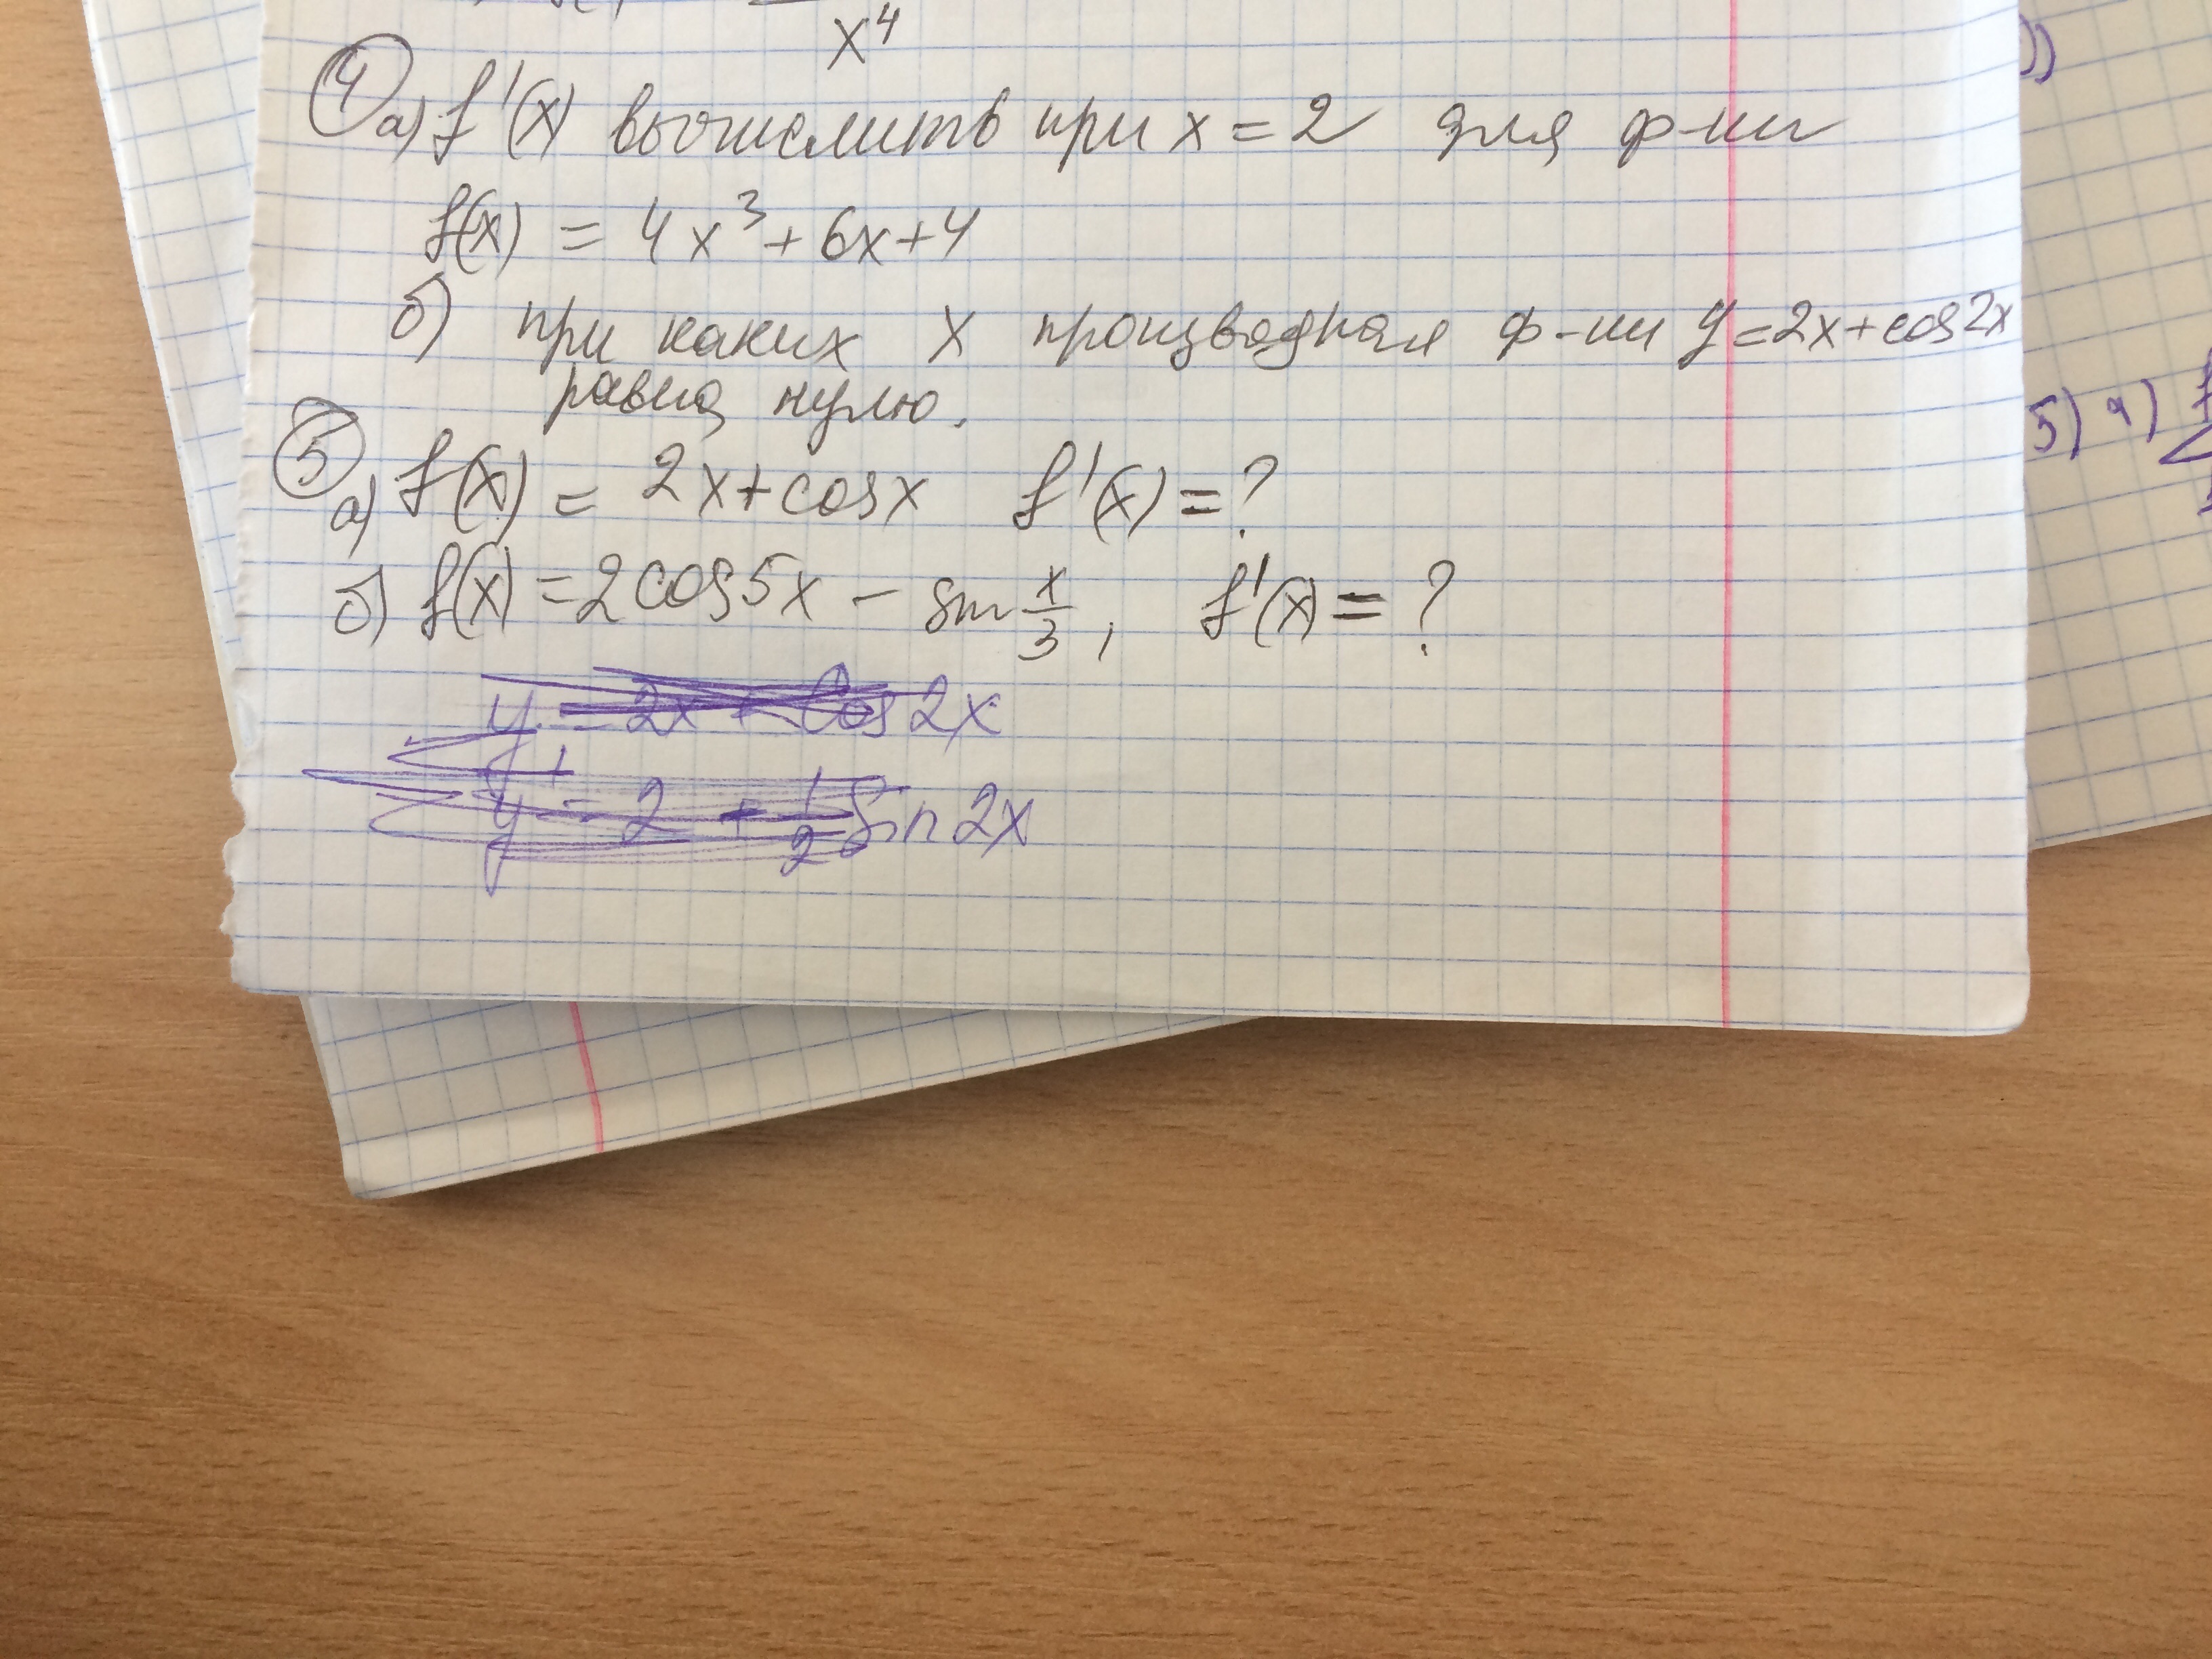 x⁴
④ а) f'(x) вычислить при x = 2 для ф-ии
f(x) = 4x³ + 6x + 4
б) при каких x производная ф-ии y = 2x + cos 2x
равна нулю.
⑤ а) f(x) = 2x + cos x f'(x) = ?
б) f(x) = 2 cos 5x – sin x/3, f'(x) = ?
y = 2x + Cos 2x
y' = 2 + 1/2 Sin 2x
))
5) а)